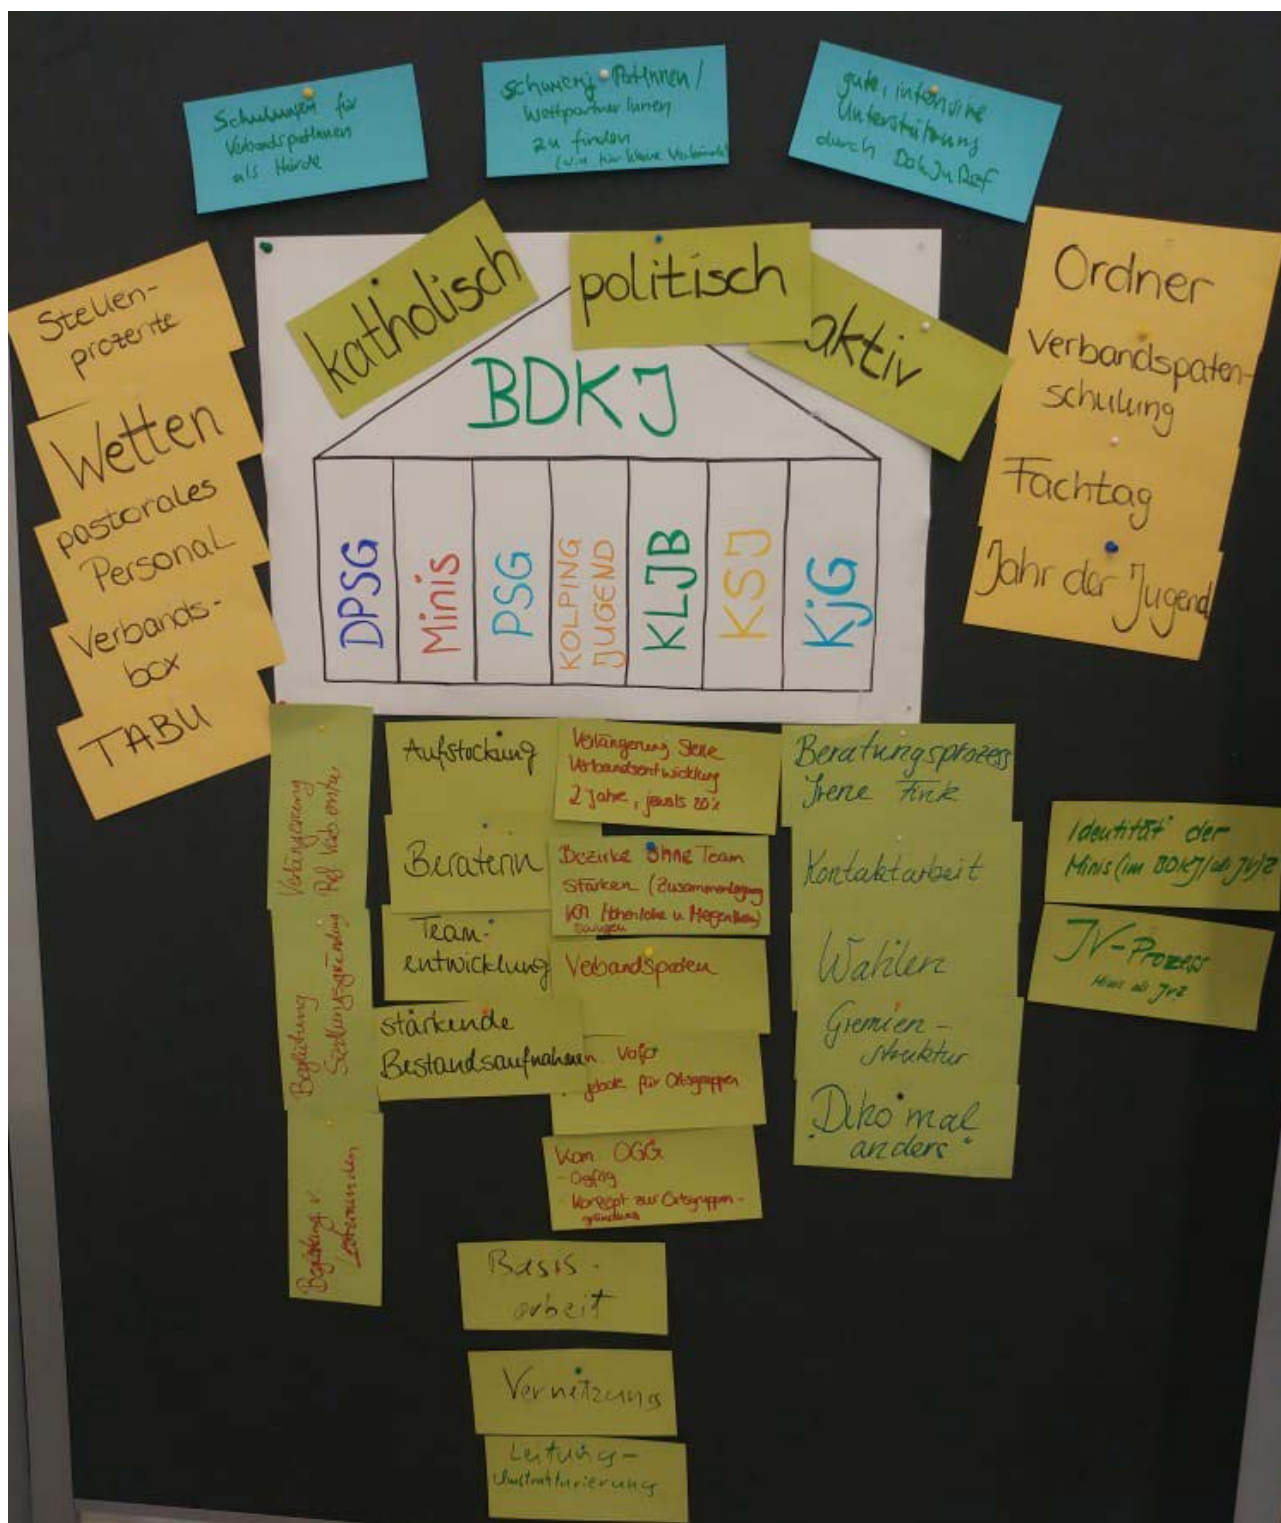 Schulungen für
VerbandspatInnen
als Hürde
schwierig PatInnen /
WettpartnerInnen
zu finden
(v.a. für kleine Verbände)
gute, intensive
Unterstützung
durch DakJuRef
katholisch
politisch
aktiv
BDKJ
DPSG
Minis
PSG
KOLPING
JUGEND
KLJB
KSJ
KjG
Stellen-
prozente
Wetten
pastorales
Personal
Verbands-
box
TABU
Ordner
Verbandspaten-
schulung
Fachtag
Jahr der Jugend
Verlängerung
Ref. Verb.entw.
Begleitung
Siedlungsgründung
Begleitung v.
Aufstockung
Beraterin
Team-
entwicklung
stärkende
Bestandsaufnahmen
Verlängerung Stelle
Verbandsentwicklung
2 Jahre, jeweils 20%
Bezirke ohne Team
stärken (Zusammenlegung
Hohenlohe u. Mergentheim)
Verbandspaten
für Ortsgruppen
OGG
- Konzept zur Ortsgruppen-
gründung
Beratungsprozess
Irene Fink
Kontaktarbeit
Wahlen
Gremien-
struktur
"Diko mal
anders"
Identität der
Minis (im BDKJ/als JV)?
JV-Prozess
Minis als JV?
Basis-
arbeit
Vernetzung
Leitungs-
Umstrukturierung